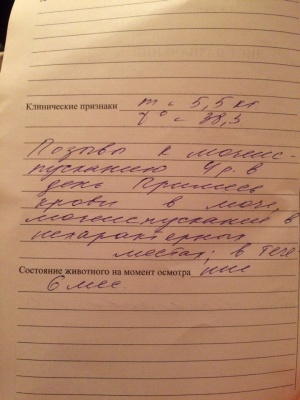 Клинические признаки m = 5,5 кг
t° = 38,3
Позывы к мочис-
пусканию 4 р. в
день Примесь
крови в моче,
мочеиспускание в
нехарактерных
местах, в тече
Состояние животного на момент осмотра ние
6 мес